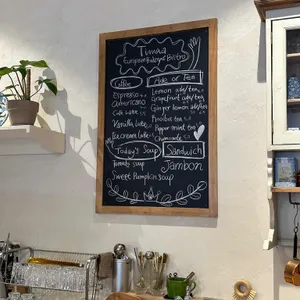 Timaa
European Bakery & Bistro
Coffee
Ade or Tea
Espresso
Americano
Cafe Latte
Vanilla Latte
Ice cream Latte
Lemon ade/tea
Grapefruit ade/tea
Ginger lemon ade/tea
Rooibos tea
Pepper mint tea
Chamomile
Today's Soup
Tomato soup
Sweet Pumpkin soup
Sandwich
Jambon